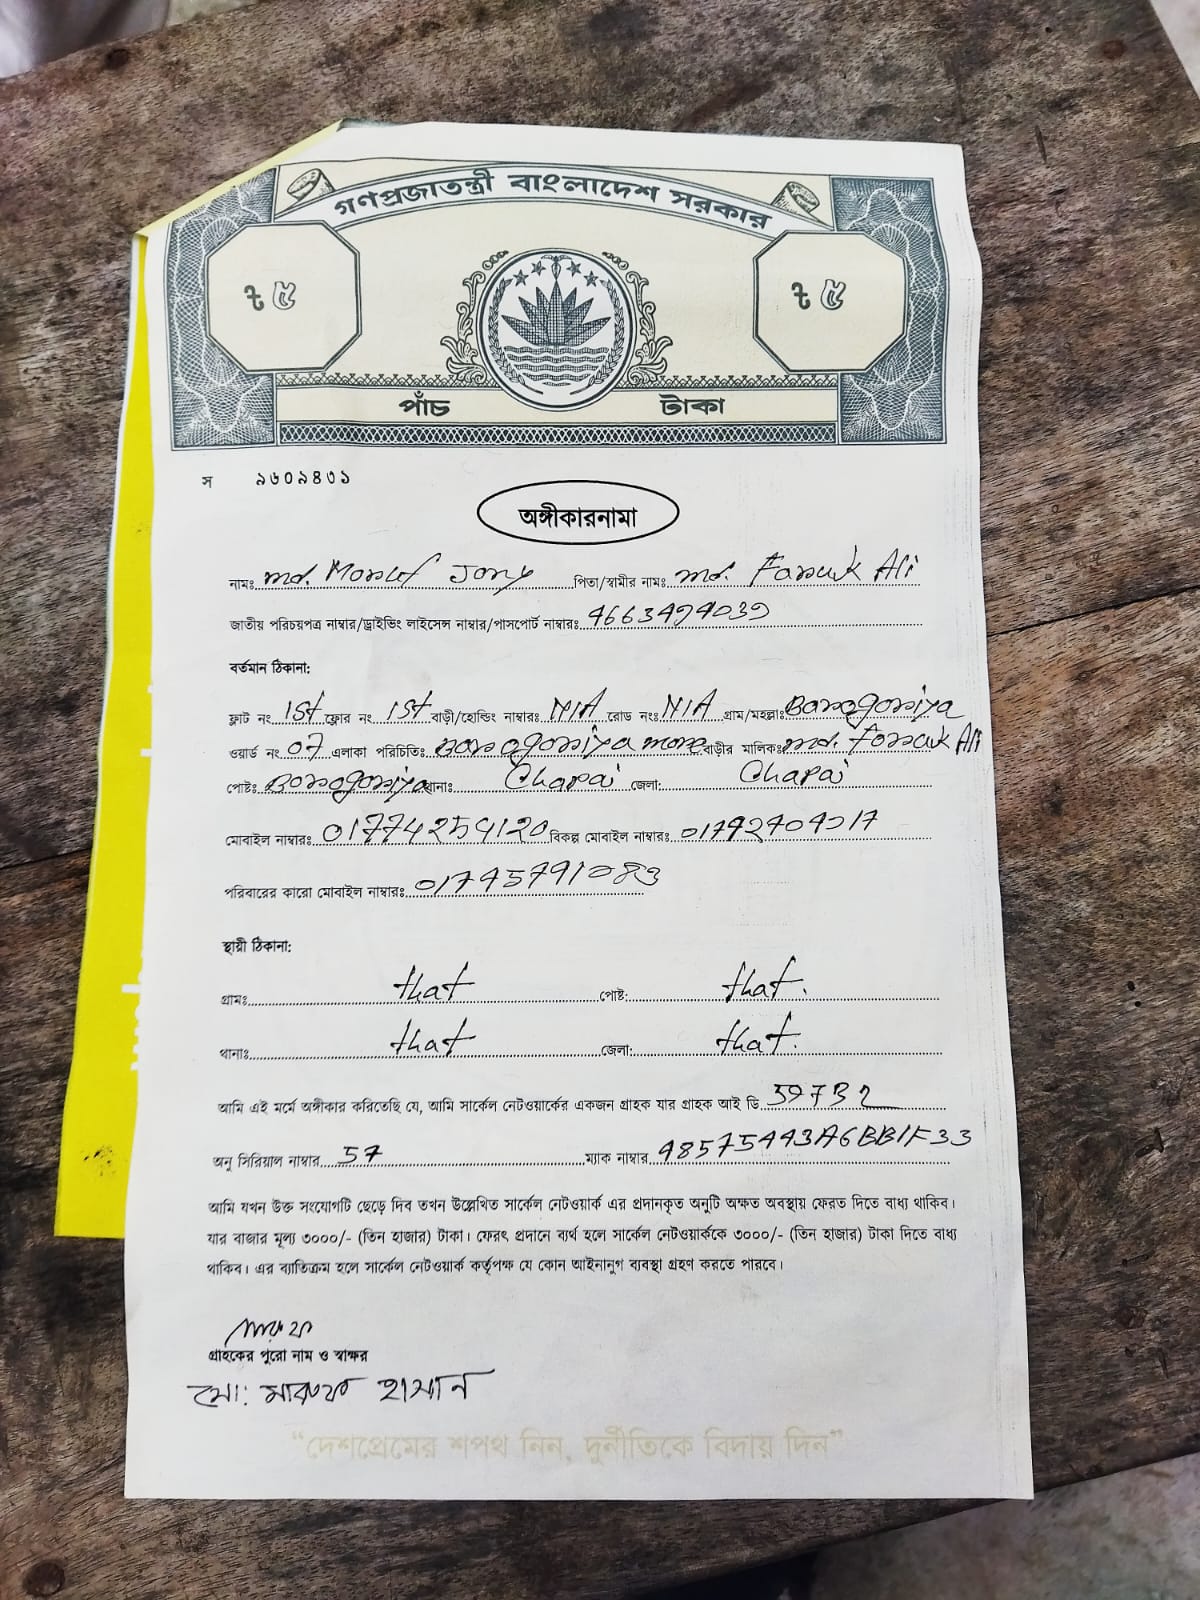 গণপ্রজাতন্ত্রী বাংলাদেশ সরকার
৳ ৫ ৳ ৫
পাঁচ টাকা
স ৯৬০৯৪৩১
অঙ্গীকারনামা
নামঃ md. Maruf Jony পিতা/স্বামীর নামঃ md. Faruk Ali
জাতীয় পরিচয়পত্র নাম্বার/ড্রাইভিং লাইসেন্স নাম্বার/পাসপোর্ট নাম্বারঃ
বর্তমান ঠিকানা:
ফ্লাট নং 1st ফ্লোর নং 1st বাড়ী/হোল্ডিং নাম্বারঃ N/A রোড নংঃ N/A গ্রাম/মহল্লাঃ Barogoriya
ওয়ার্ড নং 07 এলাকা পরিচিতিঃ Barogoriya more বাড়ীর মালিকঃ md. Faruk Ali
পোষ্টঃ Barogoriya থানাঃ Chapai জেলা: Chapai
মোবাইল নাম্বারঃ বিকল্প মোবাইল নাম্বারঃ
পরিবারের কারো মোবাইল নাম্বারঃ
স্থায়ী ঠিকানা:
গ্রামঃ that পোষ্ট: that.
থানাঃ that জেলা: that.
আমি এই মর্মে অঙ্গীকার করিতেছি যে, আমি সার্কেল নেটওয়ার্কের একজন গ্রাহক যার গ্রাহক আই ডি 59732
অনু সিরিয়াল নাম্বার 57 ম্যাক নাম্বার 48575443A6BB1F33
আমি যখন উক্ত সংযোগটি ছেড়ে দিব তখন উল্লেখিত সার্কেল নেটওয়ার্ক এর প্রদানকৃত অনুটি অক্ষত অবস্থায় ফেরত দিতে বাধ্য থাকিব।
যার বাজার মূল্য ৩০০০/- (তিন হাজার) টাকা। ফেরৎ প্রদানে ব্যর্থ হলে সার্কেল নেটওয়ার্ককে ৩০০০/- (তিন হাজার) টাকা দিতে বাধ্য
থাকিব। এর ব্যাতিক্রম হলে সার্কেল নেটওয়ার্ক কর্তৃপক্ষ যে কোন আইনানুগ ব্যবস্থা গ্রহণ করতে পারবে।
মারুফ
গ্রাহকের পুরো নাম ও স্বাক্ষর
মো: মারুফ হাসান
“দেশপ্রেমের শপথ নিন, দুর্নীতিকে বিদায় দিন”